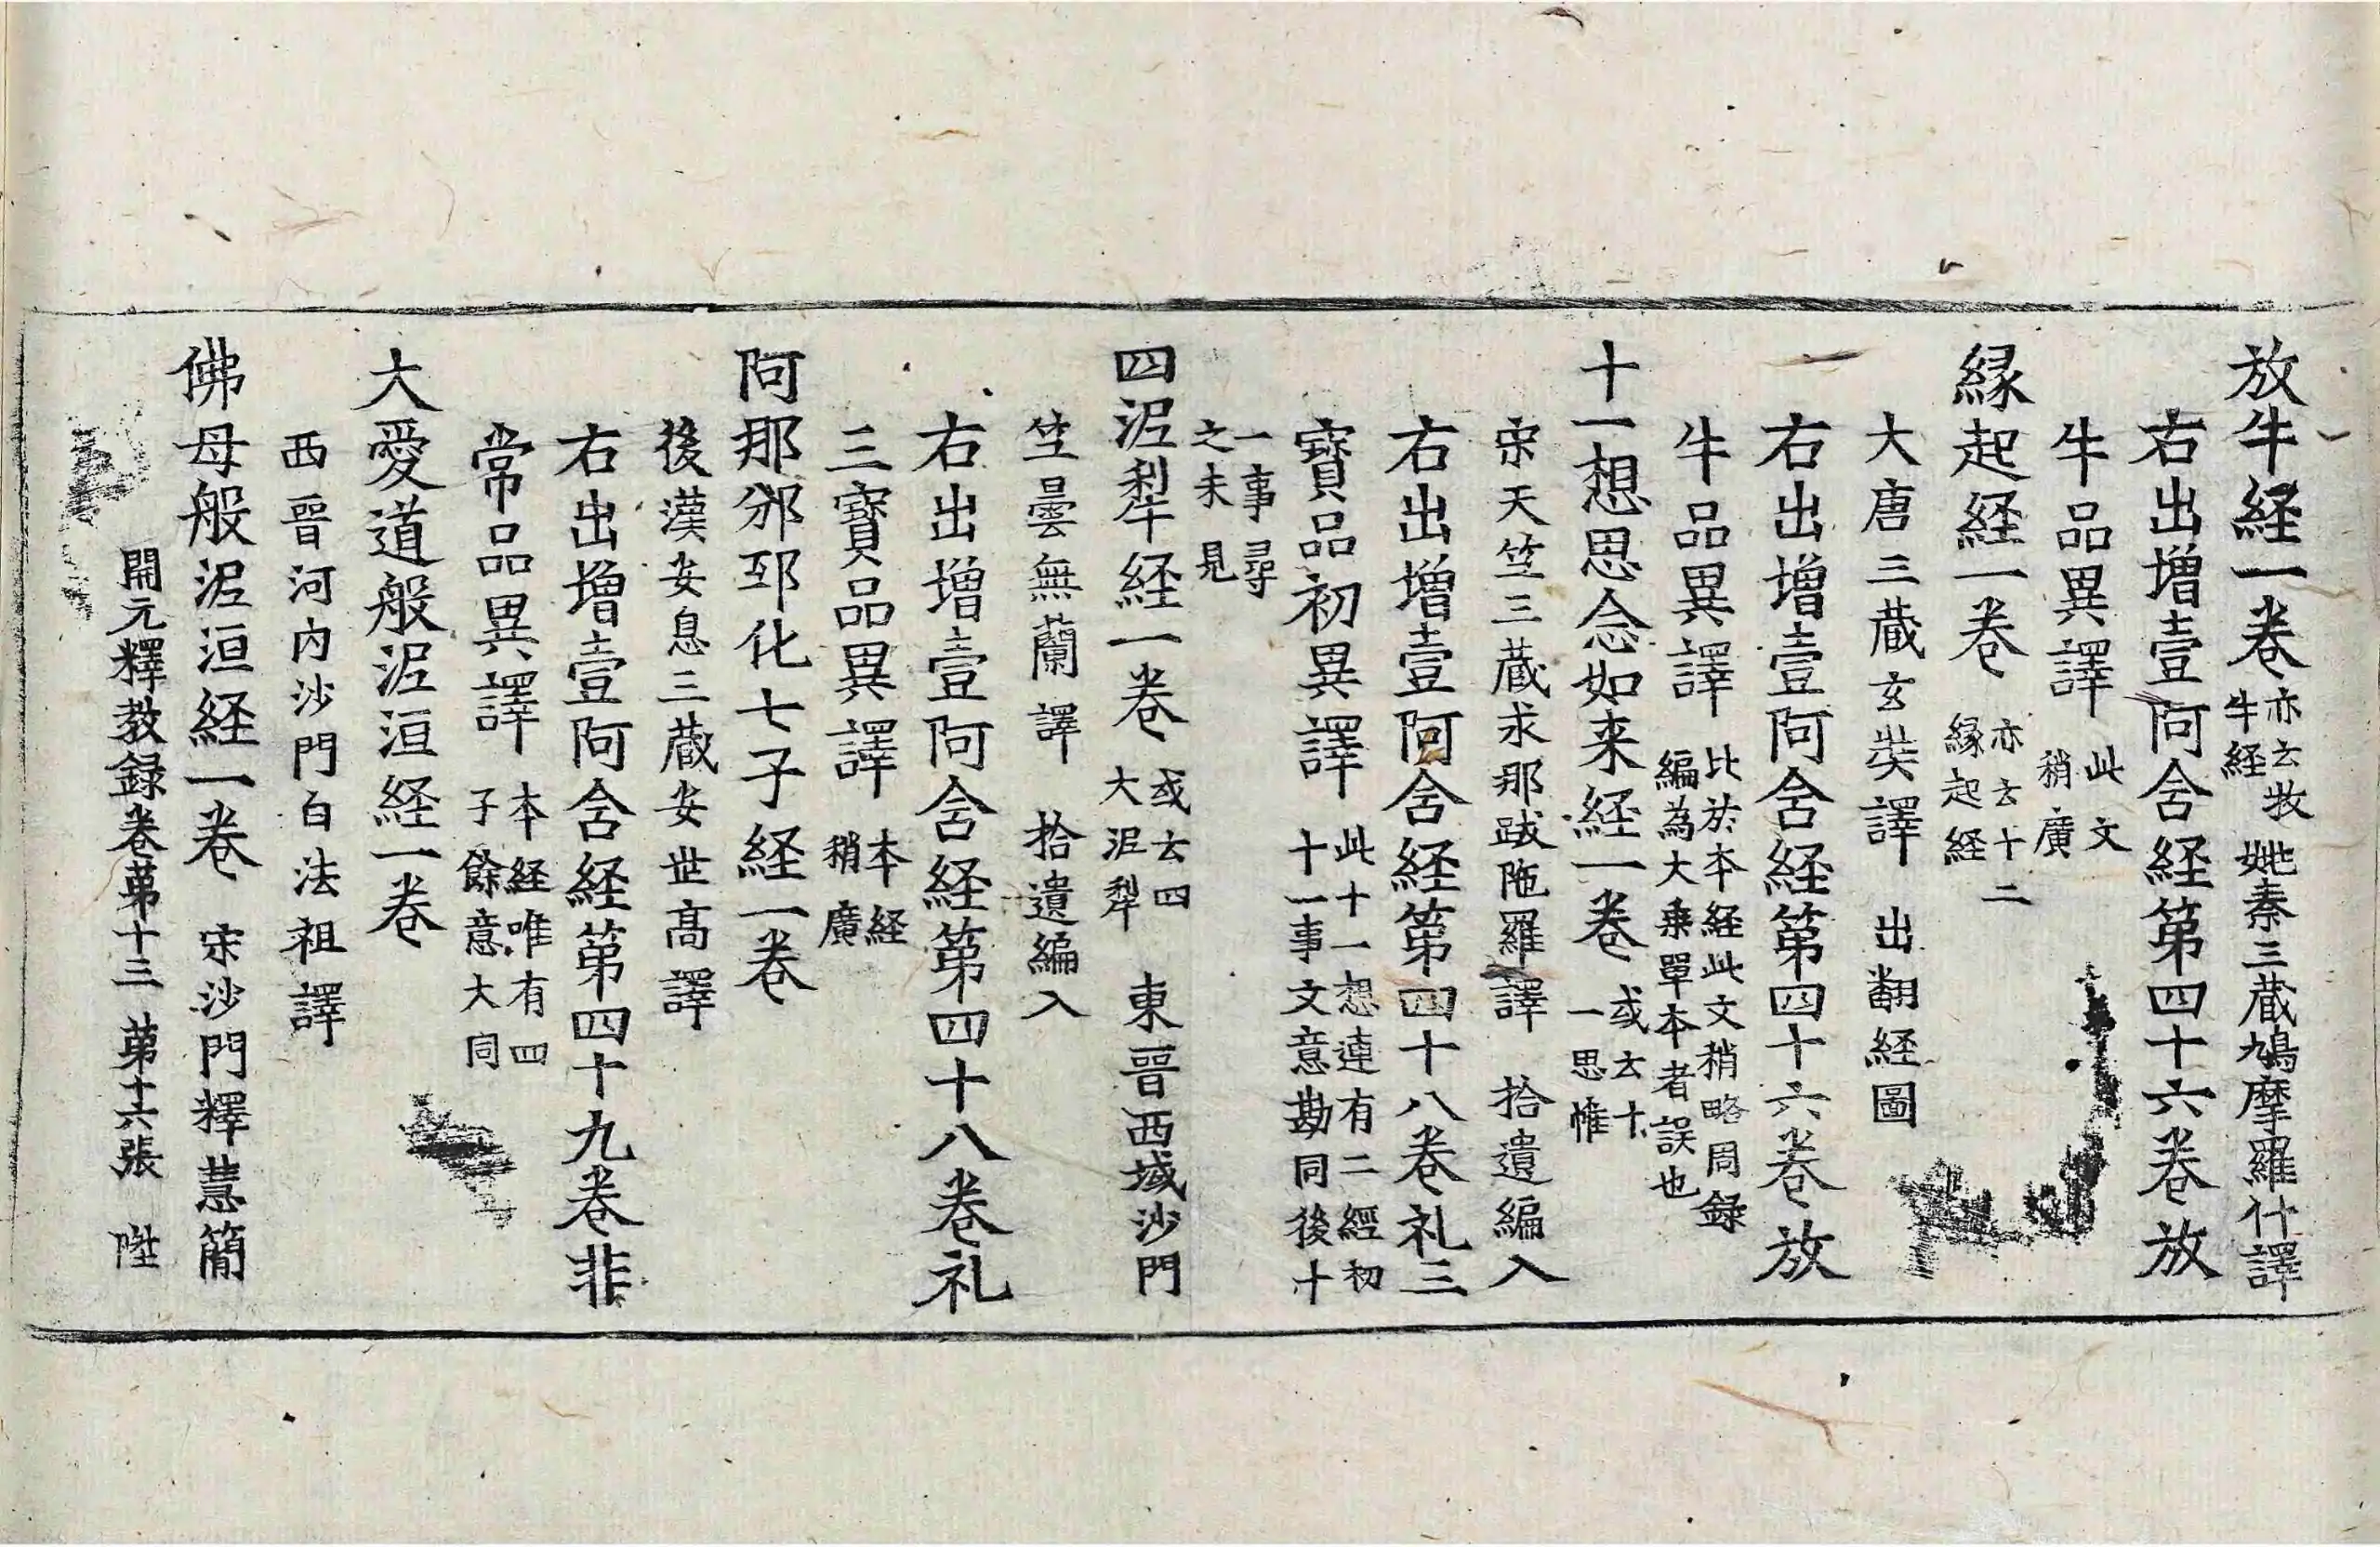 放牛経一卷亦云牧牛経姚秦三蔵鳩摩羅什譯
右出增壹阿含経第四十六卷放
牛品異譯此文稍廣
緣起経一卷亦云十二緣起経
大唐三蔵玄奘譯 出翻経圖
右出增壹阿含経第四十六卷放
牛品異譯比於本経此文稍略周録編為大乗單本者誤也
十一想思念如来経一卷或云十一思惟
宋天竺三蔵求那跋陁羅譯 拾遺編入
右出增壹阿含経第四十八卷礼三
寶品初異譯此十一想連有二經初十一事文意勘同後十
一事尋之未見
四泥犁経一卷或云四大泥犁 東晉西域沙門
竺曇無蘭譯 拾遺編入
右出增壹阿含経第四十八卷礼
三寶品異譯本経稍廣
阿那邠邳化七子経一卷
後漢安息三蔵安世髙譯
右出增壹阿含経第四十九卷非
常品異譯本経唯有四子餘意大同
大愛道般泥洹経一卷
西晉河内沙門白法祖譯
佛母般泥洹経一卷 宋沙門釋慧簡
開元釋教録卷苐十三 苐十六張 陞